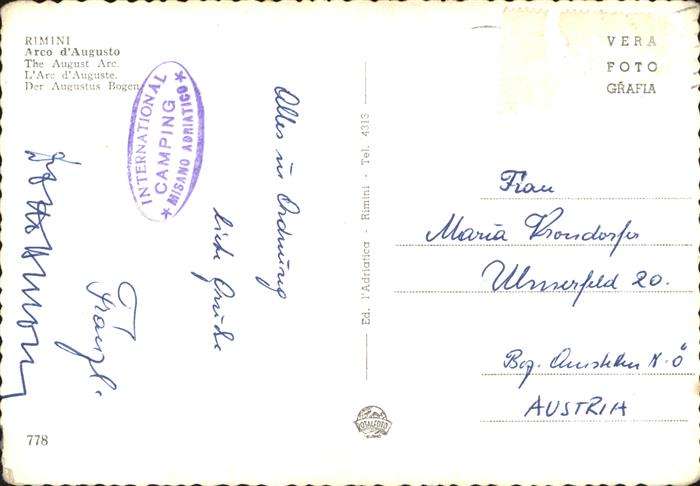 RIMINI
Arco d'Augusto
The August Arc.
L'Arc d'Auguste.
Der Augustus Bogen
INTERNATIONAL
CAMPING
* MISANO ADRIATICO *
Alles in Ordnung
liebe Grüße
Franzl.
778
Ed. l'Adriatica - Rimini - Tel. 4313
VERA
FOTO
GRAFIA
Frau
Maria Krondorfer
Ulmerfeld 20.
Bez. Amstetten N.Ö
AUSTRIA